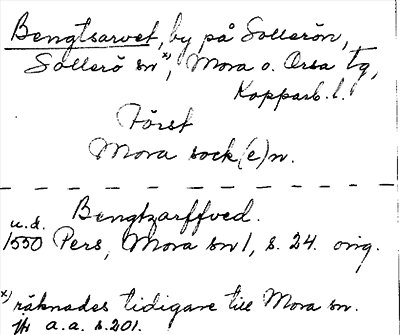 Bengtsarvet, by på Sollerön,
Sollerö sn x), Mora o. Orsa tg,
Kopparb. l.
Först
Mora sock(e)n.
Bengtzarffved.
u.d.
1550 Pers, Mora sn 1, s. 24. orig.
x) räknades tidigare till Mora sn.
a.a. s.201.